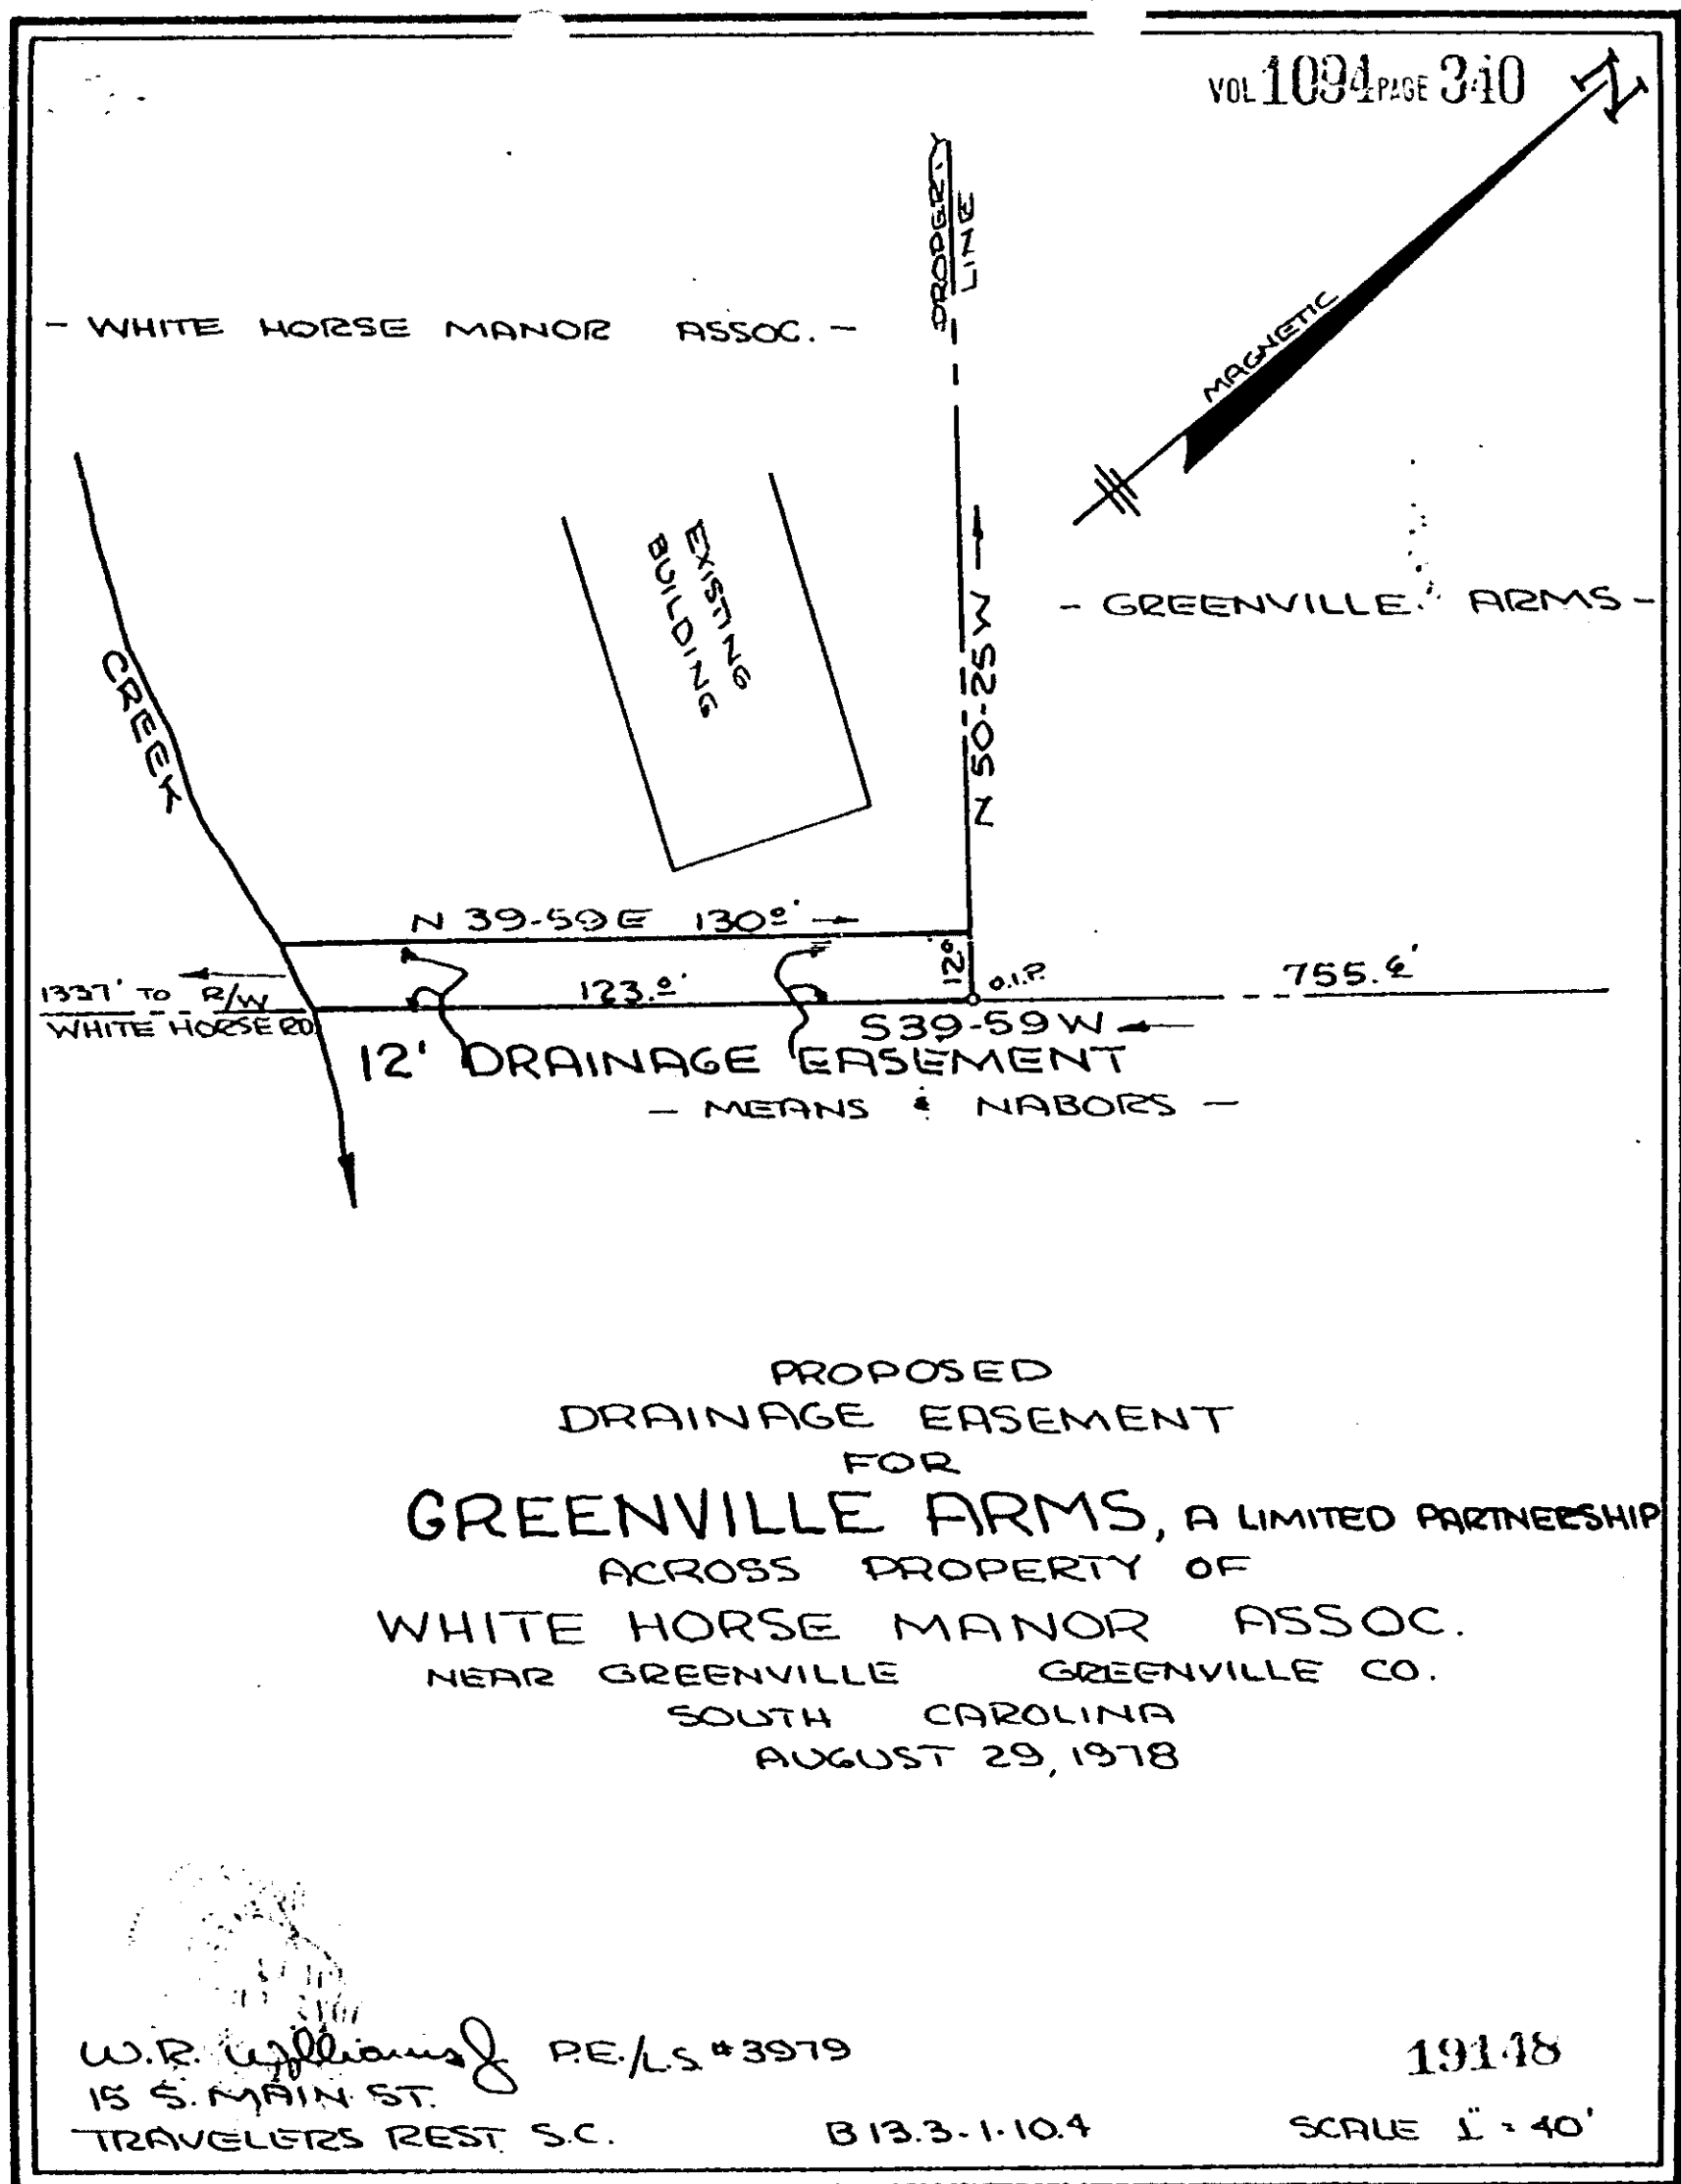 VOL 1094 PAGE 340
N
PROPERTY
LINE
- WHITE HORSE MANOR ASSOC. -
MAGNETIC
EXISTING
BUILDING
- GREENVILLE ARMS -
CREEK
N 50-25 W
N 39-59 E 130.0'
12.0'
O.I.P.
1337' TO R/W
WHITE HORSE RD.
123.0'
755.6'
S 39-59 W
12' DRAINAGE EASEMENT
- MEANS & NABORS -
PROPOSED
DRAINAGE EASEMENT
FOR
GREENVILLE ARMS, A LIMITED PARTNERSHIP
ACROSS PROPERTY OF
WHITE HORSE MANOR ASSOC.
NEAR GREENVILLE GREENVILLE CO.
SOUTH CAROLINA
AUGUST 29, 1978
W.R. Williams Jr P.E./L.S #3979
15 S. MAIN ST.
TRAVELERS REST S.C.
B 13.3-1-10.4
19148
SCALE 1" = 40'